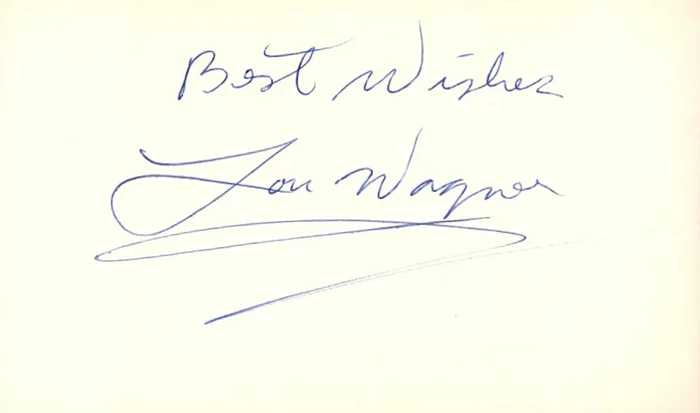 Best Wishes
Lou Wagner